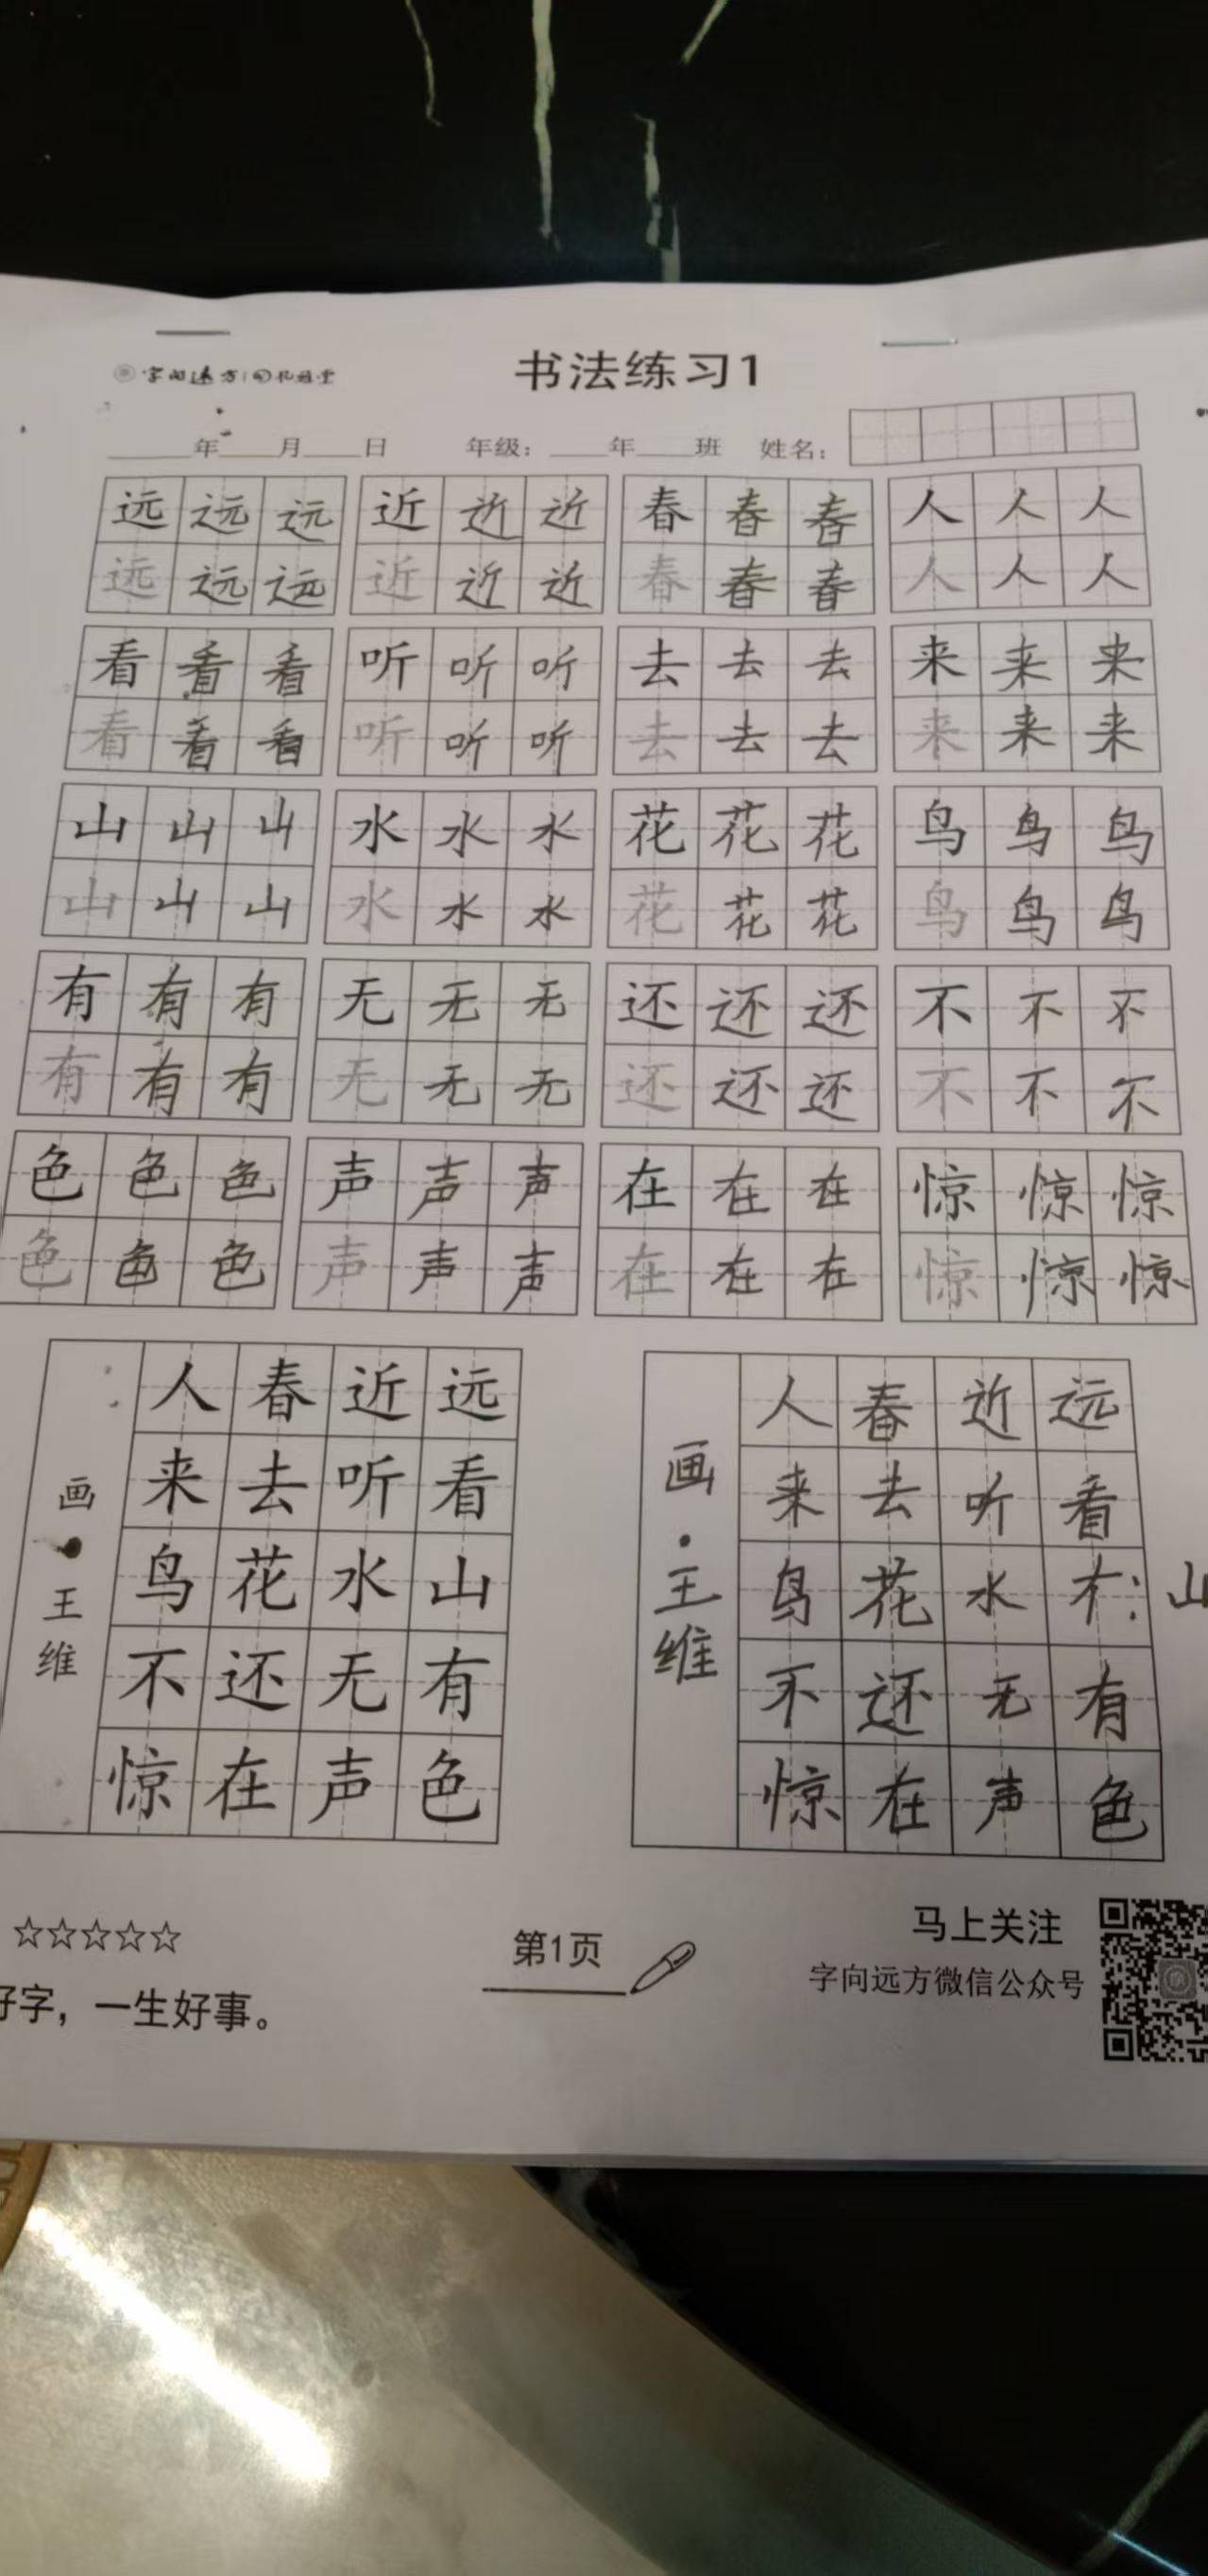 书法练习1
字向远方
年 月 日 年级： 年 班 姓名：
远远远 近近近 春春春 人人人
远远远 近近近 春春春 人人人
看看看 听听听 去去去 来来来
看看看 听听听 去去去 来来来
山山山 水水水 花花花 鸟鸟鸟
山山山 水水水 花花花 鸟鸟鸟
有有有 无无无 还还还 不不不
有有有 无无无 还还还 不不不
色色色 声声声 在在在 惊惊惊
色色色 声声声 在在在 惊惊惊
远看山有色
近听水无声
春去花还在
人来鸟不惊
画·王维
山
远看有色
近听水无声
春去花还在
人来鸟不惊
画·王维
☆☆☆☆☆
好字，一生好事。
第1页
马上关注
字向远方微信公众号